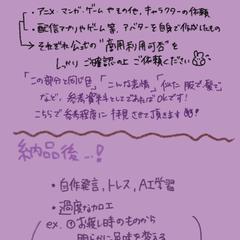 ・アニメ・マンガ・ゲームやその他、キャラクターの依頼
・配信アプリやゲーム等、アバターを自身で作成したもの
→それぞれ公式の"商用利用可否"を
しっかりご確認の上ご依頼ください
「この部分と同じ色」「こんな表情」「似た服で髪で」
など、参考資料としてであればOKです!
こちらで参考程度に拝見させて頂きます
納品後…!
・自作発言、トレス、AI学習
・過度な加工
(ex. ①お渡し時のものから
明らかに品味を変える